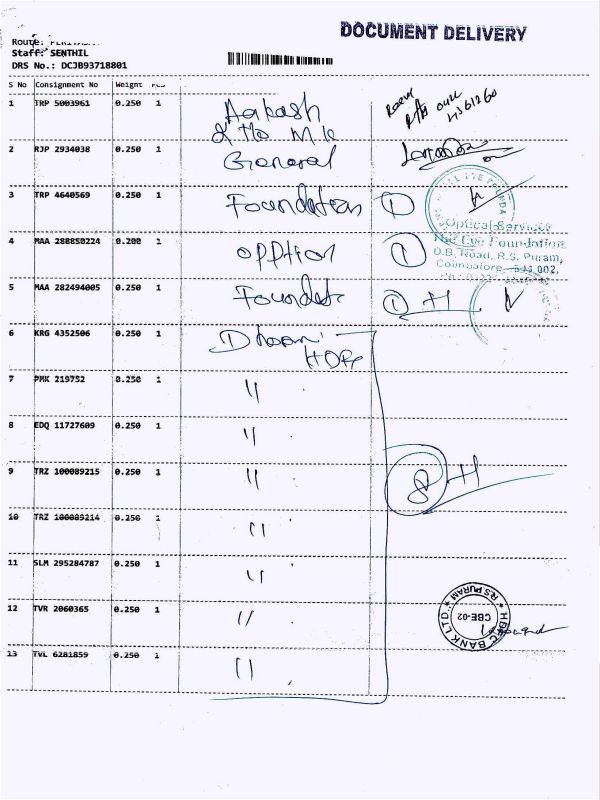 DOCUMENT DELIVERY
Route:
Staff: SENTHIL
DRS No.: DCJB93718801
S No Consignment No Weight PCS
1 TRP 5003961 0.250 1 Aakash
2 RJP 2934038 0.250 1 General
3 TRP 4640569 0.250 1 Foundation 1
Optical Services
4 MAA 288850224 0.200 1 opption 1
The Eye Foundation
D.B. Road, R.S. Puram,
Coimbatore - 641 002.
5 MAA 282494005 0.250 1 Foundat 1
6 KRG 4352506 0.250 1
7 PMK 219752 0.250 1 "
8 EDQ 11727609 0.250 1 "
9 TRZ 100089215 0.250 1 " 8
10 TRZ 100089214 0.250 1 "
11 SLM 295284787 0.250 1 "
12 TVR 2060365 0.250 1 "
HDFC BANK LTD. * R S PURAM *
CBE-02
13 TVL 6281859 0.250 1 "